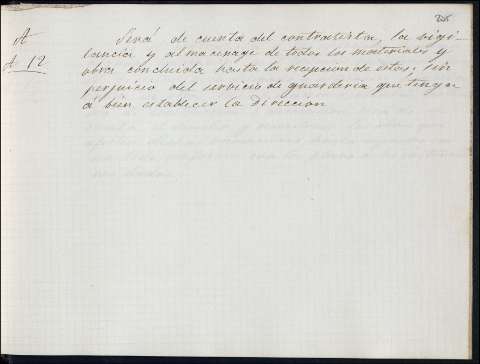 A
A 12
Será de cuenta del contratista, la vigi-
lancia y almacenage de todos los materiales y
obra concluida hasta la recepcion de estos, sin
perjuicio del servicio de guarderia que tenga
á bien establecer la Direccion